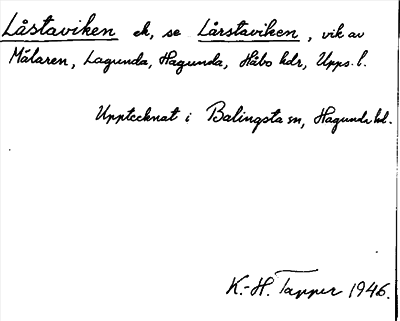 Låstaviken ek, se Lårstaviken, vik av
Mälaren, Lagunda, Hagunda, Håbo hdr, Upps. l.
Upptecknat i Balingsta sn, Hagunda hd.
K.-H. Tapper 1946.